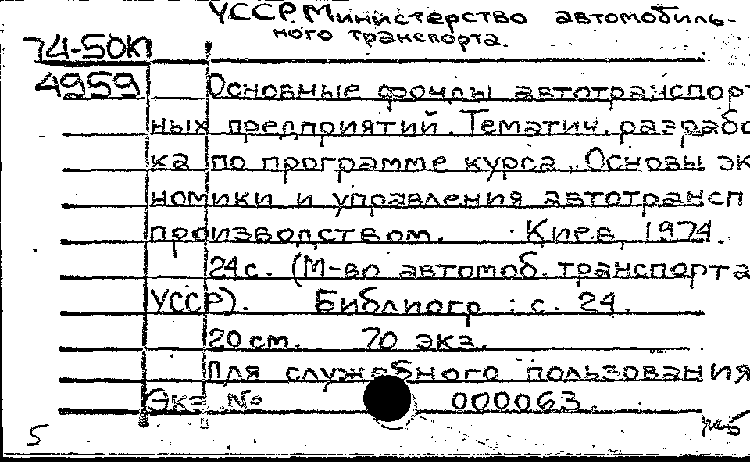 УССР. Министерство автомобиль-
ного транспорта.
74-50К
4959
Основные фонды автотранспорт
ных предприятий. Тематич. разрабо
ка по программе курса "Основы эк
номики и управления автотрансп
производством. Киев, 1974.
24 с. (М-во автомоб. транспорта
УССР). Библиогр : с. 24.
20 см. 70 экз.
Для служебного пользования
Экз №
000063.
5